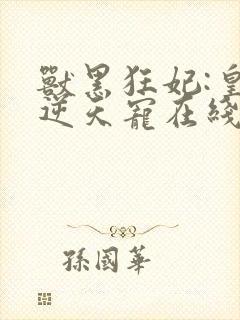 獸黑狂妃:皇
逆天寵在綫
孫國華